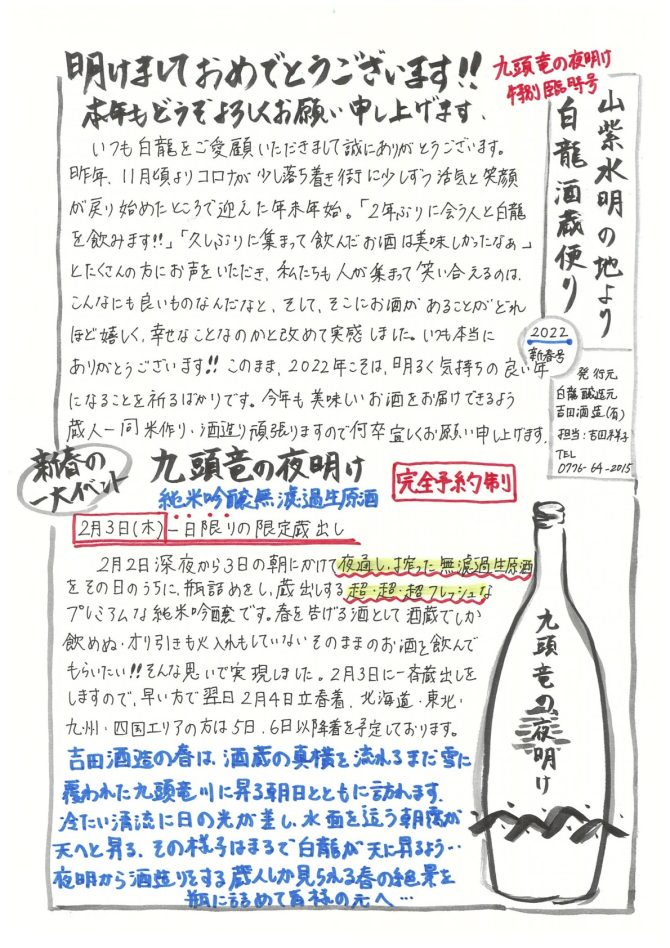 明けましておめでとうございます!!
本年もどうぞよろしくお願い申し上げます.
九頭竜の夜明け
特別臨時号
山紫水明の地より
白龍酒蔵便り
2022
新春号
発行元
白龍醸造元
吉田酒造(有)
担当:吉田祥子
TEL
0776-64-2015
いつも白龍をご愛顧いただきまして誠にありがとうございます。
昨年、11月頃よりコロナが少し落ち着き街に少しずつ活気と笑顔
が戻り始めたところで迎えた年末年始。「2年ぶりに会う人と白龍
を飲みます!!」「久しぶりに集まって飲んだお酒は美味しかったなぁ」
とたくさんの方にお声をいただき、私たちも人が集まって笑い合えるのは、
こんなにも良いものなんだなと、そして、そこにお酒があることがどれ
ほど嬉しく、幸せなことなのかと改めて実感しました。いつも本当に
ありがとうございます!! このまま、2022年こそは、明るく気持ちの良い年
になることを祈るばかりです。今年も美味しいお酒をお届けできるよう
蔵人一同米作り・酒造り頑張りますので何卒宜しくお願い申し上げます。
新春の
一大イベント
九頭竜の夜明け
純米吟醸無濾過生原酒
完全予約制
2月3日(木)一日限りの限定蔵出し
2月2日深夜から3日の朝にかけて夜通し搾った無濾過生原酒
をその日のうちに、瓶詰めをし、蔵出しする超・超・超フレッシュな
プレミアムな純米吟醸です。春を告げる酒として酒蔵でしか
飲めぬ・オリ引きも火入れもしていないそのままのお酒を飲んで
もらいたい!! そんな思いで実現しました。2月3日に一斉蔵出しを
しますので、早い方で翌日2月4日立春着、北海道・東北・
九州・四国エリアの方は5日、6日以降着を予定しております。
吉田酒造の春は、酒蔵の真横を流れるまだ雪に
覆われた九頭竜川に昇る朝日とともに訪れます.
冷たい清流に日の光が差し、水面を這う朝霧が
天へと昇る、その様子はまるで白龍が天に昇るよう‥
夜明から酒造りをする蔵人しか見られる春の絶景を
瓶に詰めて皆様の元へ…
九頭竜の夜明け